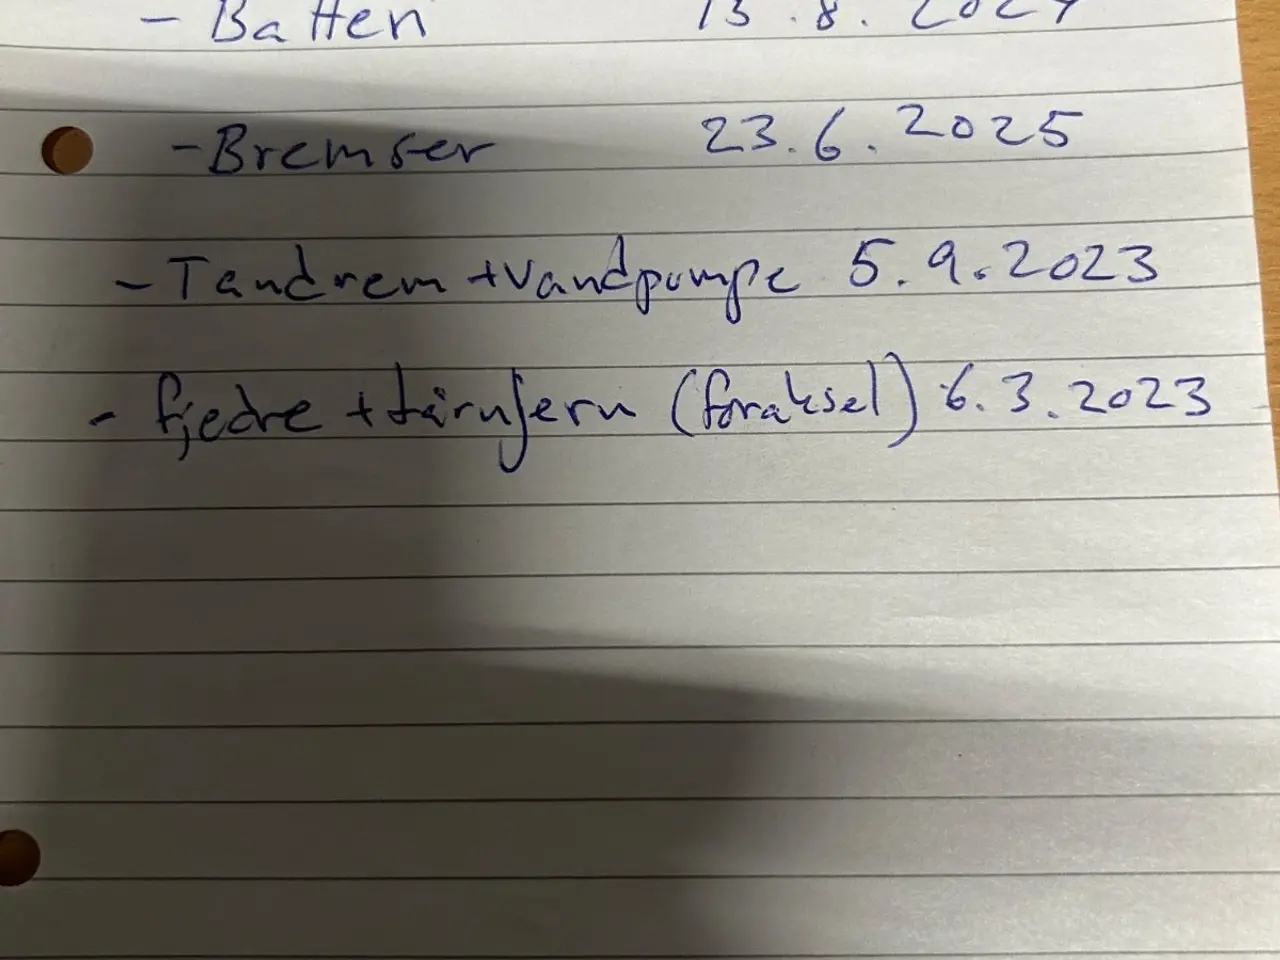 - Batteri 13.8.2024
- Bremser 23.6.2025
- Tandrem + Vandpumpe 5.9.2023
- fjedre + tårnfern (foraksel) 6.3.2023